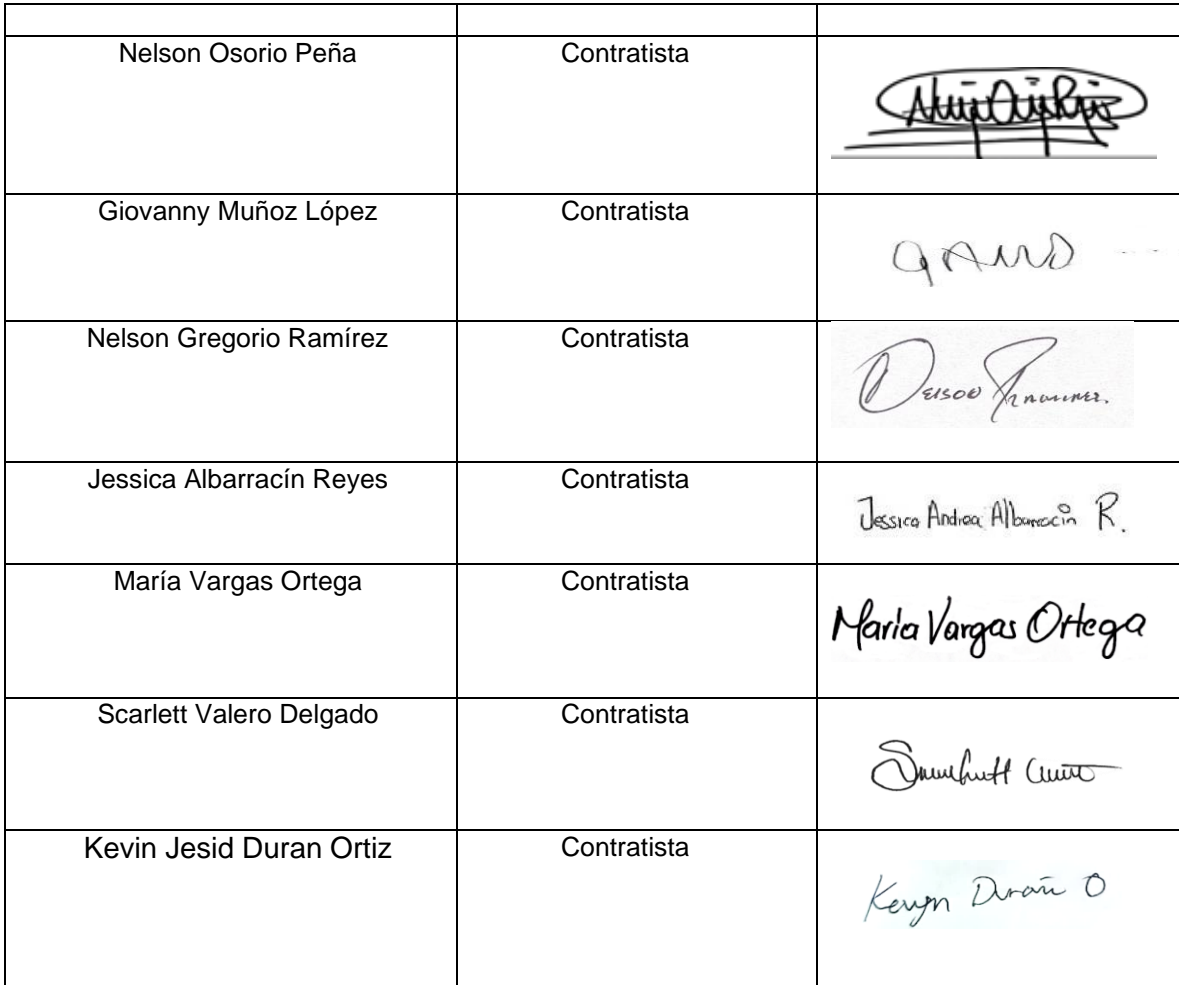 Nelson Osorio Peña Contratista
Giovanny Muñoz López Contratista
Nelson Gregorio Ramírez Contratista
Jessica Albarracín Reyes Contratista
Jessica Andrea Albarracín R.
María Vargas Ortega Contratista
Maria Vargas Ortega
Scarlett Valero Delgado Contratista
Kevin Jesid Duran Ortiz Contratista
Duran O